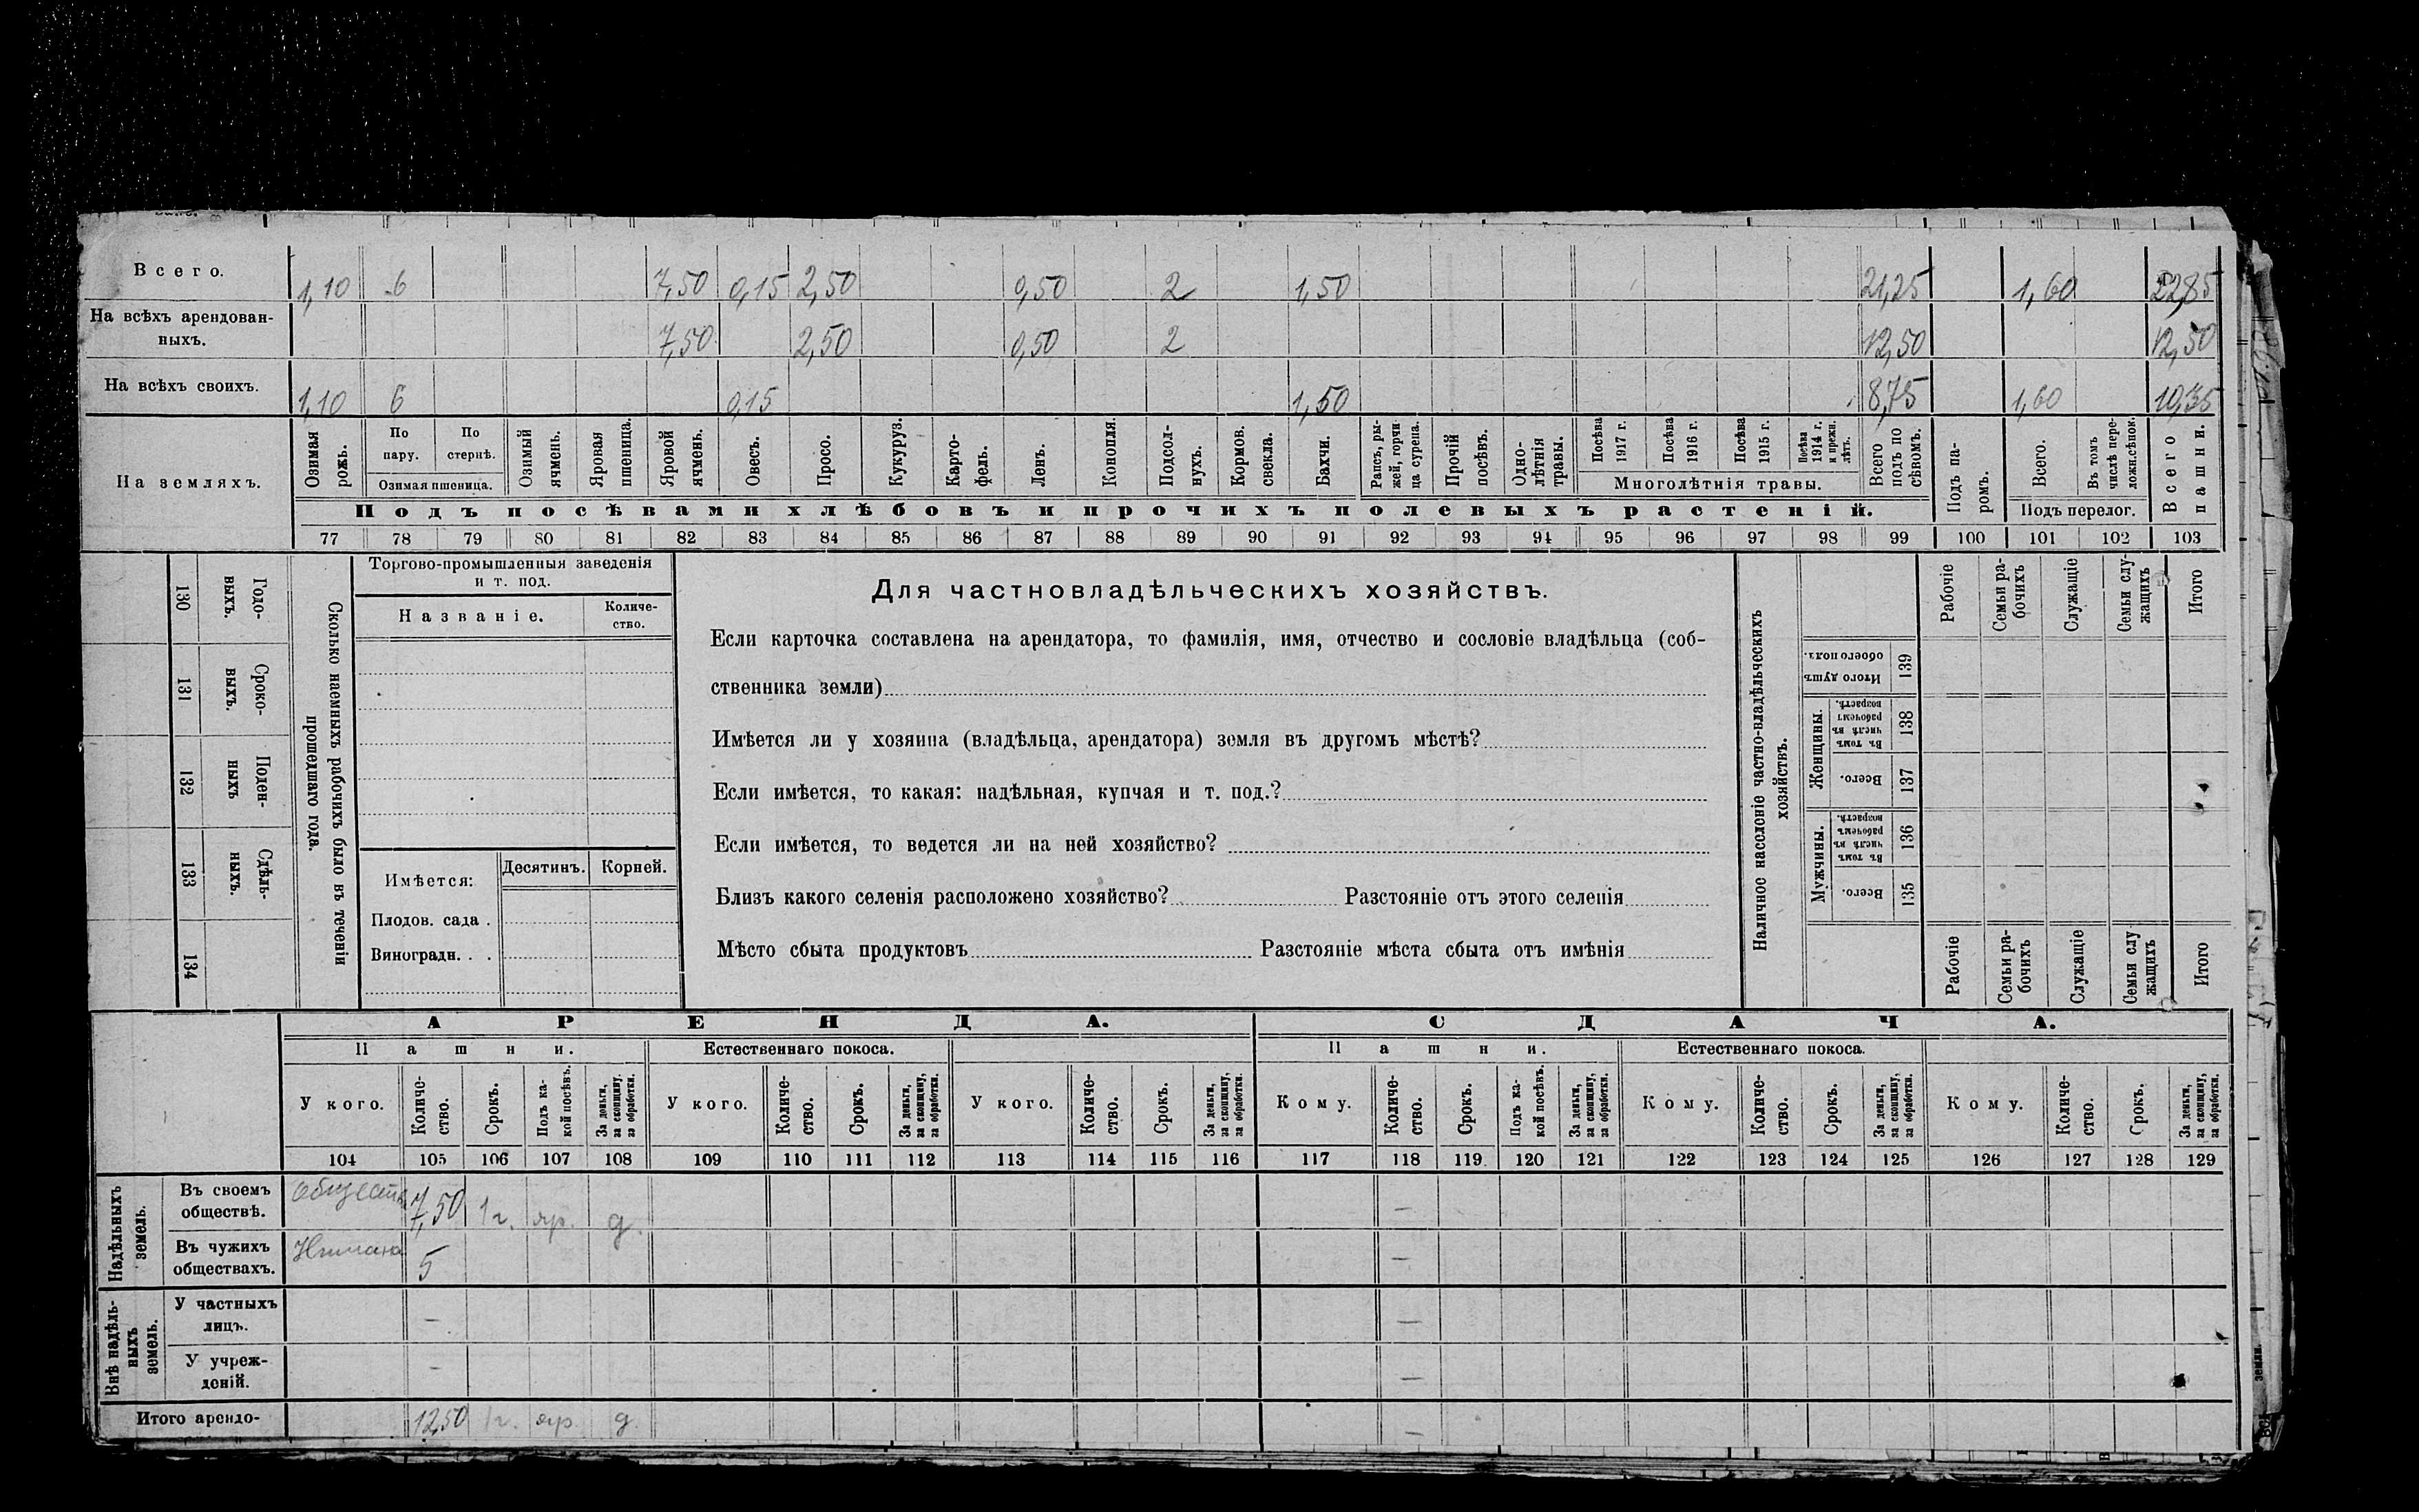 Всего. 1,10 6 7,50 0,15 2,50 0,50 2 1,50 21,25 1,60 22,85
На всѣхъ арендован-
ныхъ. 7,50 2,50 0,50 2 12,50 12,50
На всѣхъ своихъ. 1,10 6 0,15 1,50 8,75 1,60 10,35
На земляхъ.
Озимая рожь.
По пару.
По стернѣ.
Озимая пшеница.
Озимый ячмень.
Яровая пшеница.
Яровой ячмень.
Овесъ.
Просо.
Кукуруз.
Карто-
фель.
Ленъ.
Конопля.
Подсол-
нухъ.
Кормов. свекла.
Бахчи.
Рапсъ, ры-
жей, горчи-
ца сурепа.
Прочій посѣвъ.
Одно-
лѣтнія травы.
Посѣва 1917 г.
Посѣва 1916 г.
Посѣва 1915 г.
Посѣва 1914 г. и прежн. лѣтъ.
Многолѣтнія травы.
Всего подъ по сѣвомъ.
Подъ па-
ромъ.
Всего.
Въ томъ числѣ пере-
ложн.сѣнок.
Подъ перелог.
Всего пашни.
Подъ посѣвами хлѣбовъ и прочихъ полевыхъ растеній.
77 78 79 80 81 82 83 84 85 86 87 88 89 90 91 92 93 94 95 96 97 98 99 100 101 102 103
130 Годо-
выхъ.
131 Сроко-
выхъ.
132 Поден-
ныхъ
133 Сдѣль-
ныхъ.
134
Сколько наемныхъ рабочихъ было въ теченіи
прошедшаго года.
Торгово-промышленныя заведенія
и т. под.
Названіе. Количе-
ство.
Имѣется: Десятинъ. Корней.
Плодов. сада .
Виноградн. . .
Для частновладѣльческихъ хозяйствъ.
Если карточка составлена на арендатора, то фамилія, имя, отчество и сословіе владѣльца (соб-
ственника земли)
Имѣется ли у хозяина (владѣльца, арендатора) земля въ другомъ мѣстѣ?
Если имѣется, то какая: надѣльная, купчая и т. под.?
Если имѣется, то ведется ли на ней хозяйство?
Близъ какого селенія расположено хозяйство? Разстояніе отъ этого селенія
Мѣсто сбыта продуктовъ Разстояніе мѣста сбыта отъ имѣнія
Наличное населеніе частно-владѣльческихъ
хозяйствъ.
Рабочіе
Семьи ра-
бочихъ
Служащіе
Семьи слу-
жащихъ
Итого
Итого душъ обоего пола. 139
Женщины.
Въ томъ числѣ въ рабочемъ возрастѣ. 138
Всего. 137
Мужчины.
Въ томъ числѣ въ рабочемъ возрастѣ. 136
Всего. 135
Рабочіе
Семьи ра-
бочихъ
Служащіе
Семьи слу-
жащихъ
Итого
АРЕНДА. СДАЧА.
Пашни. Естественнаго покоса. Пашни. Естественнаго покоса.
У кого. Количе-
ство. Срокъ. Подъ ка-
кой посѣвъ. За деньги, за скопщину, за обработки.
У кого. Количе-
ство. Срокъ. За деньги, за скопщину, за обработки.
У кого. Количе-
ство. Срокъ. За деньги, за скопщину, за обработки.
Кому. Количе-
ство. Срокъ. Подъ ка-
кой посѣвъ. За деньги, за скопщину, за обработки.
Кому. Количе-
ство. Срокъ. За деньги, за скопщину, за обработки.
Кому. Количе-
ство. Срокъ. За деньги, за скопщину, за обработки.
104 105 106 107 108 109 110 111 112 113 114 115 116 117 118 119 120 121 122 123 124 125 126 127 128 129
Надѣльныхъ земель.
Въ своемъ
обществѣ. 7,50 1 г. яр. д. —
Въ чужихъ
обществахъ. 5 —
Внѣ надѣль-
ныхъ земель.
У частныхъ
лицъ. — —
У учреж-
деній. — —
Итого арендо- 12,50 1 г. яр. д. —
земли.